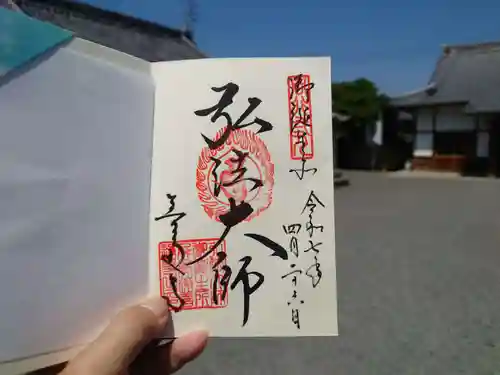 御誕生所
令和七年
四月二十六日
弘法大師